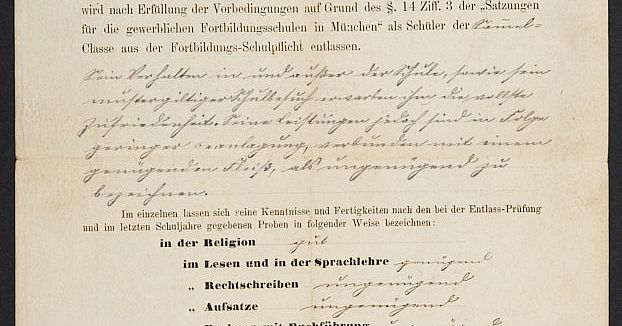 wird nach Erfüllung der Vorbedingungen auf Grund des §. 14 Ziff. 3 der „Satzungen
für die gewerblichen Fortbildungsschulen in München" als Schüler der Sammel-
Classe aus der Fortbildungs-Schulpflicht entlassen.
Sein Verhalten in und außer der Schule, sowie sein
mustergiltiger Schulbesuch erwarben ihm die vollste
Zufriedenheit. Seine Leistungen jedoch sind in Folge
geringer Beanlagung, verbunden mit einem
genügenden Fleiß, als ungenügend zu
bezeichnen.
Im einzelnen lassen sich seine Kenntnisse und Fertigkeiten nach den bei der Entlass-Prüfung
und im letzten Schuljahre gegebenen Proben in folgender Weise bezeichnen:
in der Religion gut
im Lesen und in der Sprachlehre genügend
„ Rechtschreiben ungenügend
„ Aufsatze ungenügend
„ Rechnen mit Buchführung